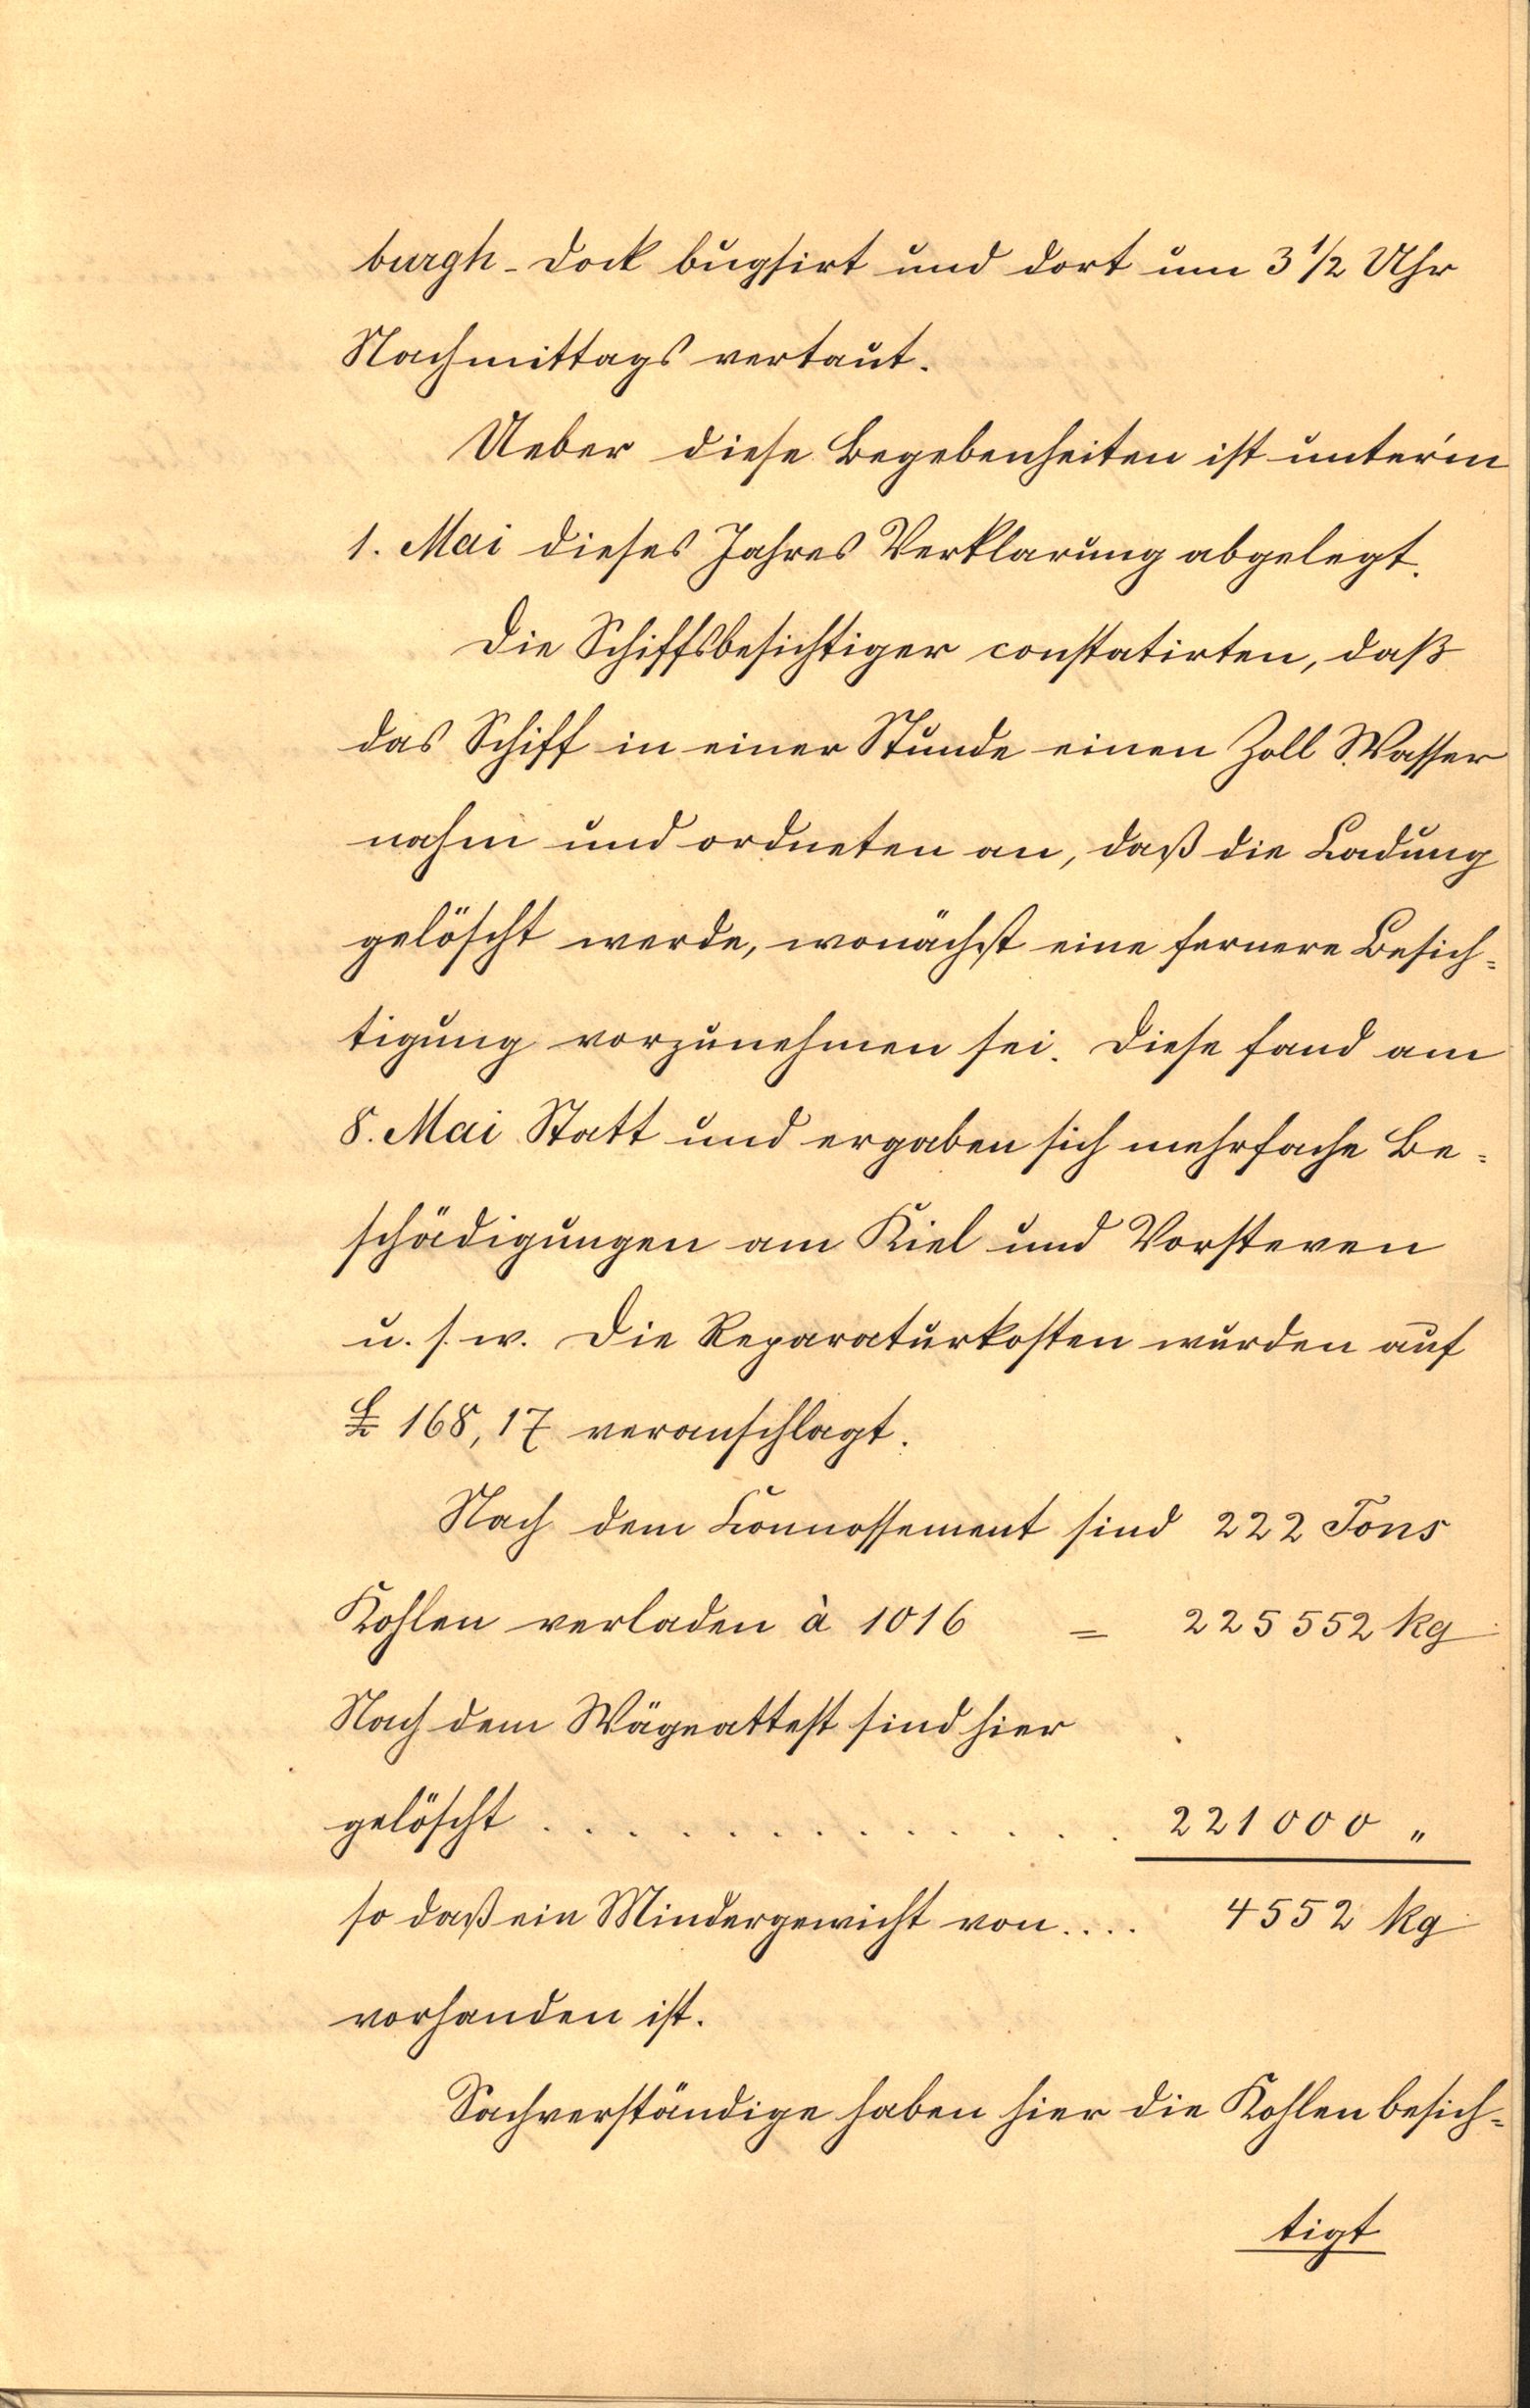 burgh-Dock bugsirt und dort um 3 1/2 Uhr
Nachmittags vertaut.
Ueber diese Begebenheiten ist unter'm
1. Mai dieses Jahres Verklarung abgelegt.
Die Schiffsbesichtiger constatirten, daß
das Schiff in einer Stunde einen Zoll Wasser
nahm und ordneten an, daß die Ladung
gelöscht werde, wonächst eine fernere Besich-
tigung vorzunehmen sei. Diese fand am
8. Mai Statt und ergaben sich mehrfache Be-
schädigungen am Kiel und Vorsteven
u. s. w. Die Reparaturkosten wurden auf
£ 168,17 veranschlagt.
Nach dem Connossement sind 222 Tons
Kohlen verladen à 1016 = 225 552 kg
Nach dem Wägeattest sind hier
gelöscht . . . . . . . . . . . . . . 221 000 "
so daß ein Mindergewicht von .... 4552 kg
vorhanden ist.
Sachverständige haben hier die Kohlen besich-
tigt